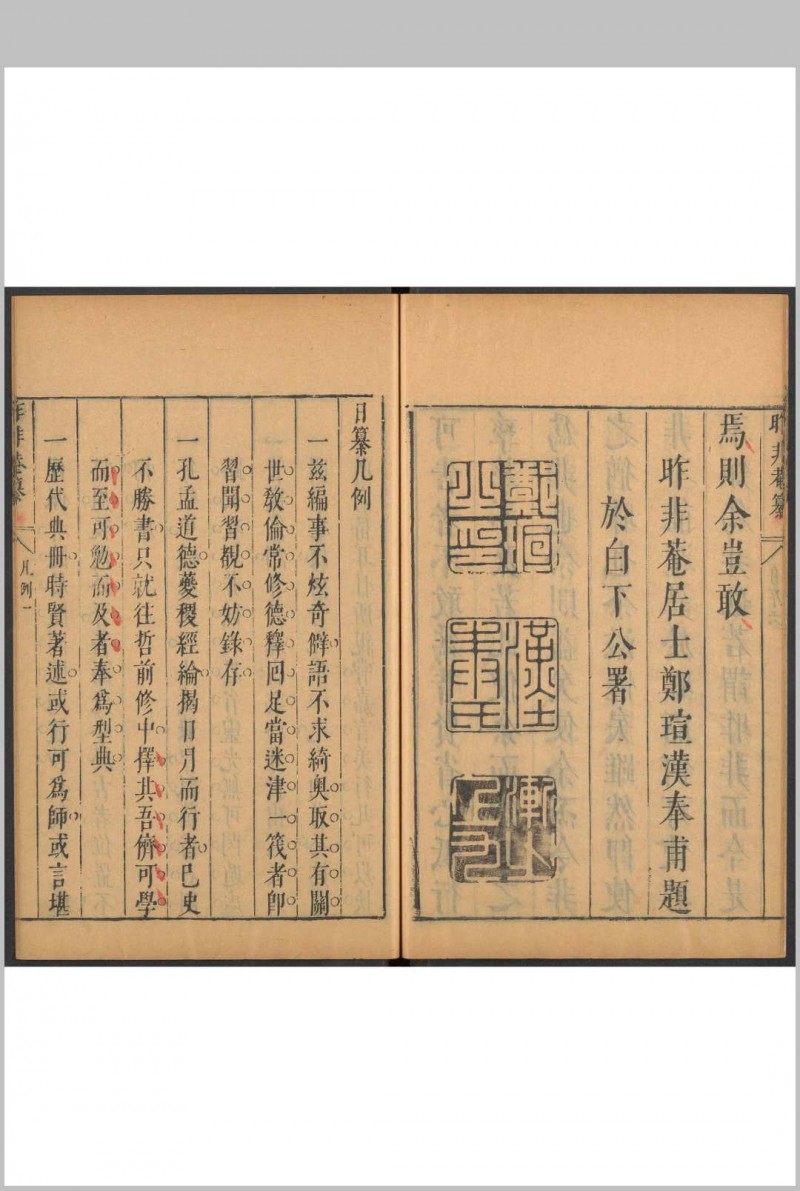 昨非菴纂
焉則余豈敢
昨非菴居士鄭瑄漢奉甫題
於白下公署
鄭瑄之印
漢奉氏
日纂凡例
一茲編事不炫奇僻語不求綺奧取其有關
世敎倫常修德釋回足當迷津一筏者卽
習聞習覩不妨錄存
一孔孟道德夔稷經綸揭日月而行者已史
不勝書只就往哲前修中擇其吾儕可學
而至可勉而及者奉爲型典
一歷代典冊時賢著述或行可爲師或言堪
昨非菴纂
凡例一